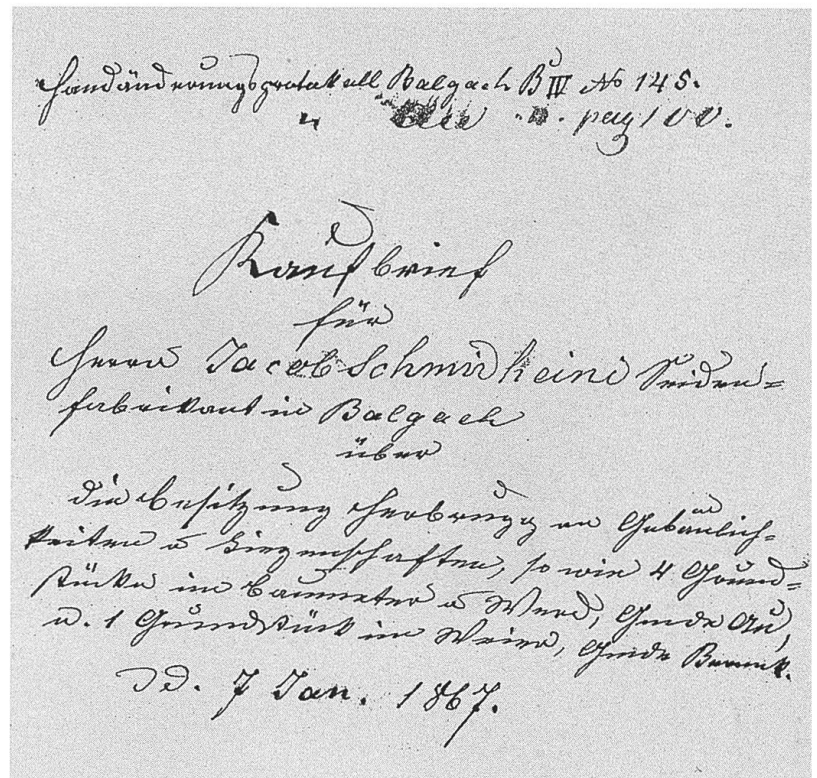 Handänderungsprotokoll Balgach B IV No 145.
" Au ". pag 100.
Kaufbrief
für
Herrn Jacob Schmidheini Seiden=
fabrikant in Balgach
über
die Besitzung Heerbrugg an Gebäulich-
keiten u Liegenschaften, so wie 4 Grund=
stücke im u Werd, Gmde Au,
u. 1 Grundstück im Weier, Gmde Bernek.
dd. 7 Jan. 1867.